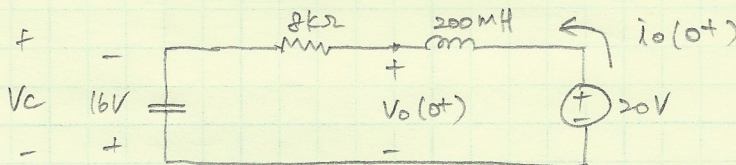 8kΩ 200mH io(0+)
+ -
Vc 16V + Vo(0+) + - 20V
- + -